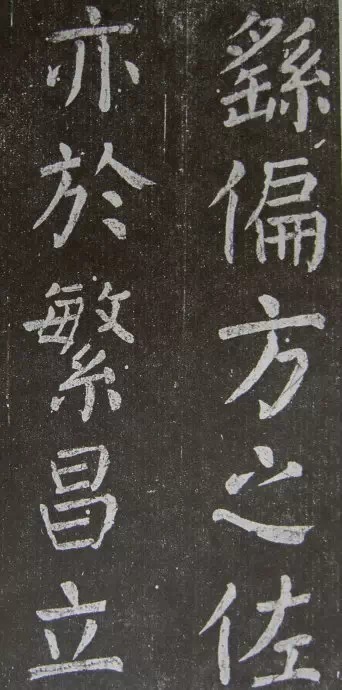 繇偏方之佐
亦於繁昌立